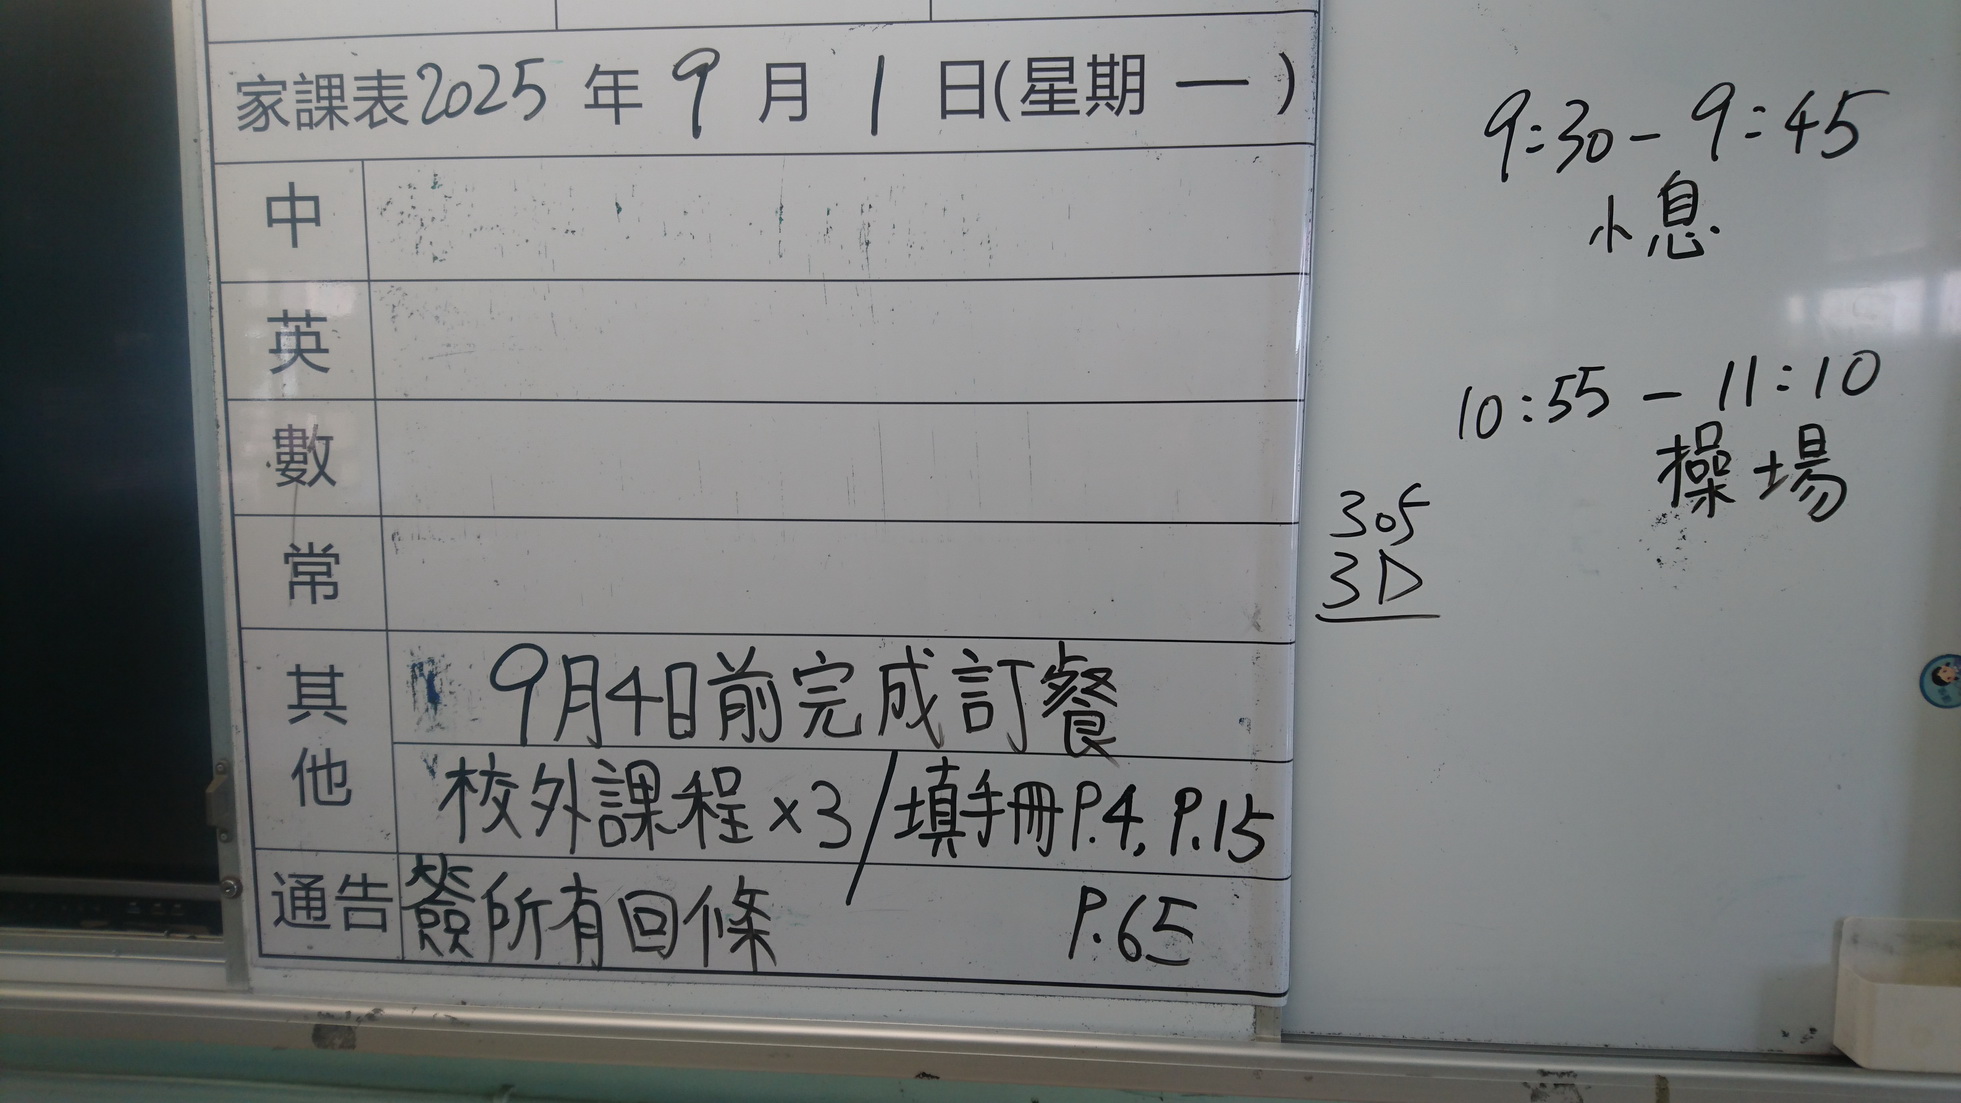 家課表2025年9月1日(星期一)
中
英
數
常
其他
9月4日前完成訂餐
校外課程×3/填手冊P.4, P.15
P.65
通告
簽所有回條
9:30-9:45
小息
10:55-11:10
操場
305
3D